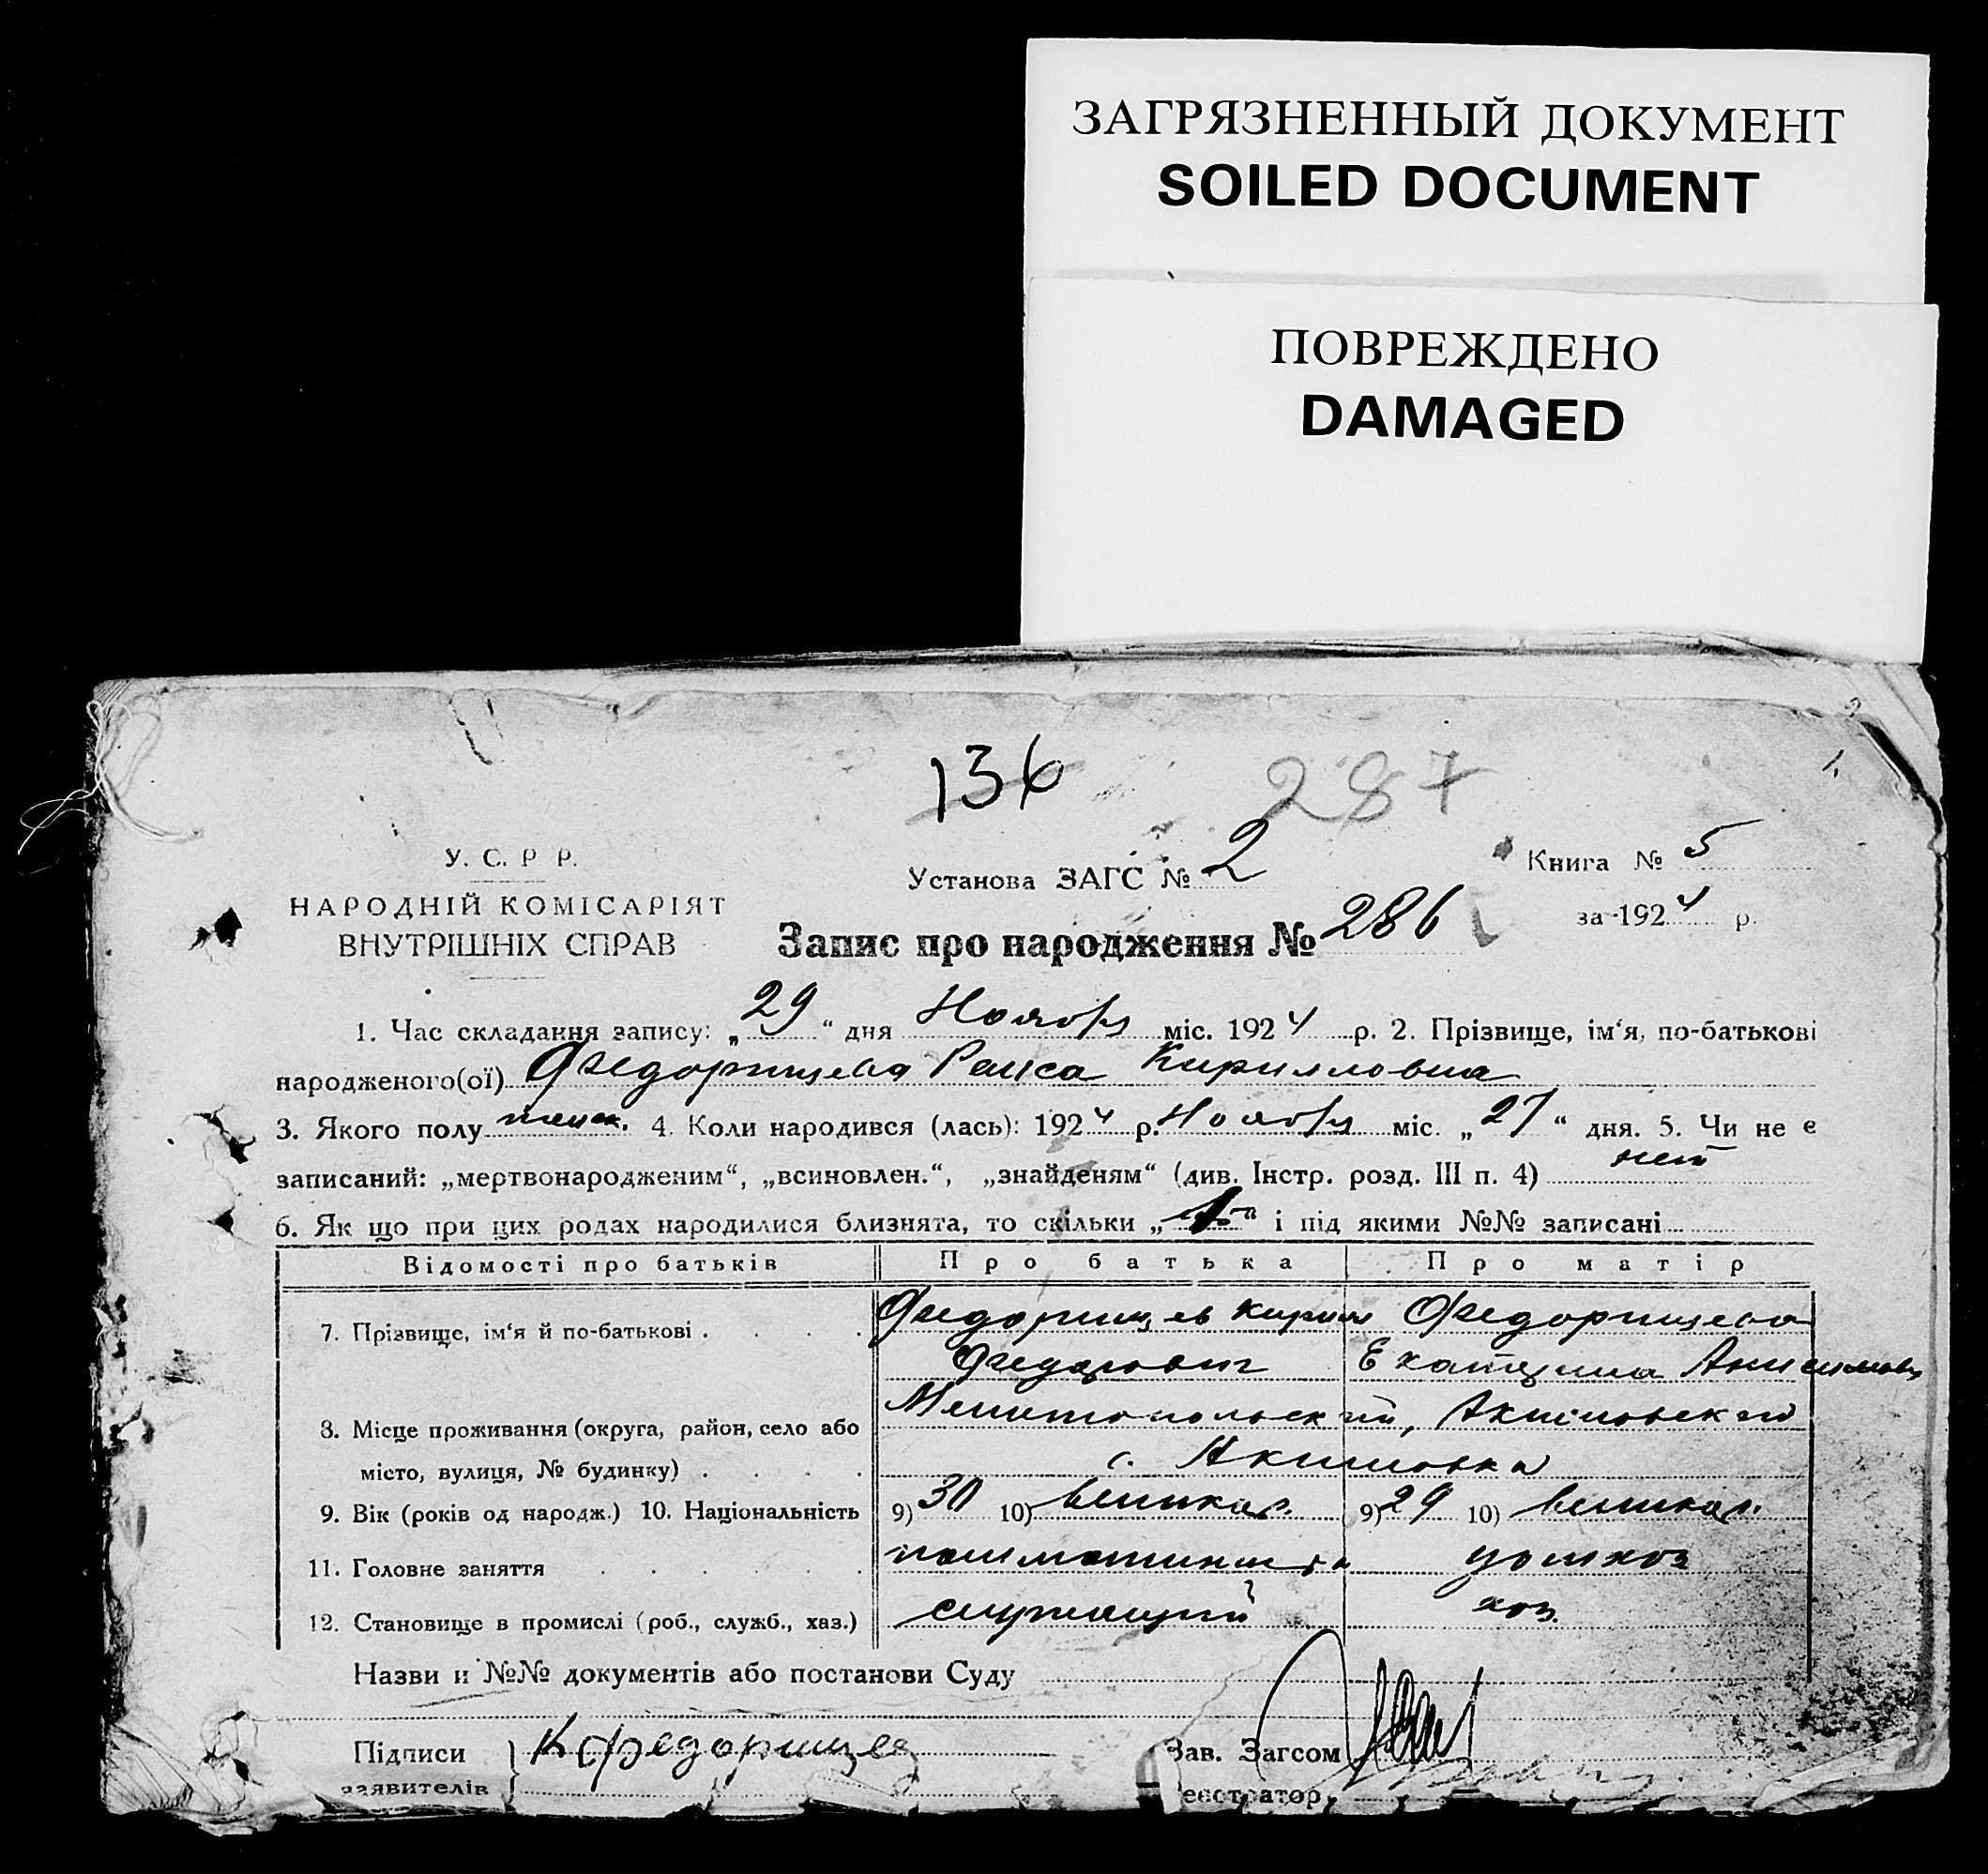 ЗАГРЯЗНЕННЫЙ ДОКУМЕНТ
SOILED DOCUMENT
ПОВРЕЖДЕНО
DAMAGED
136 287
У. С. Р Р.
НАРОДНІЙ КОМІСАРІЯТ
ВНУТРІШНІХ СПРАВ
Установа ЗАГС № 2
Книга № 5
Запис про народження № 286
за 1924 р.
1. Час складання запису: „29“ дня Ноября міс. 1924 р. 2. Прізвище, ім‘я, по-батькові
народженого(ої) Федорищева Раиса Кирилловна
3. Якого полу женск. 4. Коли народився (лась): 1924 р. Ноября міс. „27“ дня. 5. Чи не є
записаний: „мертвонародженим“, „всиновлен.“, „знайденям“ (див. Інстр. розд. III п. 4) нет
6. Як що при цих родах народилися близнята, то скільки „ “ і під якими №№ записані
Відомості про батьків Про батька Про матір
7. Прізвище, ім‘я й по-батькові . . . . Федорищев Кирил Федорищева
Федорович Екатерина Анисимовн
8. Місце проживання (округа, район, село або Мелитопольский, Акимовский
місто, вулиця, № будинку) . . . . с. Акимовка
9. Вік (років од народж.) 10. Національність 9) 30 10) великор. 9) 29 10) великор.
11. Головне заняття . . . . . . домхоз
12. Становище в промислі (роб., служб., хаз.) служащий хоз.
Назви и №№ документів або постанови Суду
Підписи К Федорищев Зав. Загсом
заявителів еєстратор